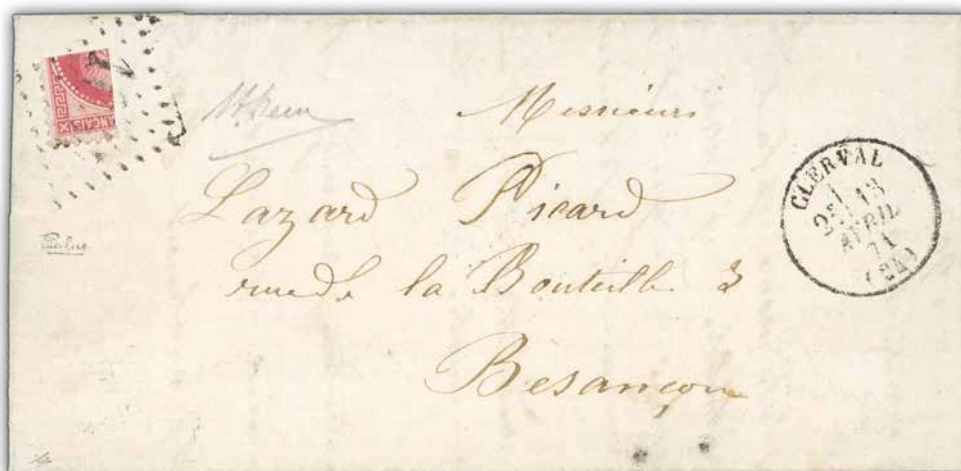 ANÇAIS
Messieurs
Lazard Picard
rue de la Bouteille 3
Besançon
CLERVAL
13
AVRIL
71
(24)